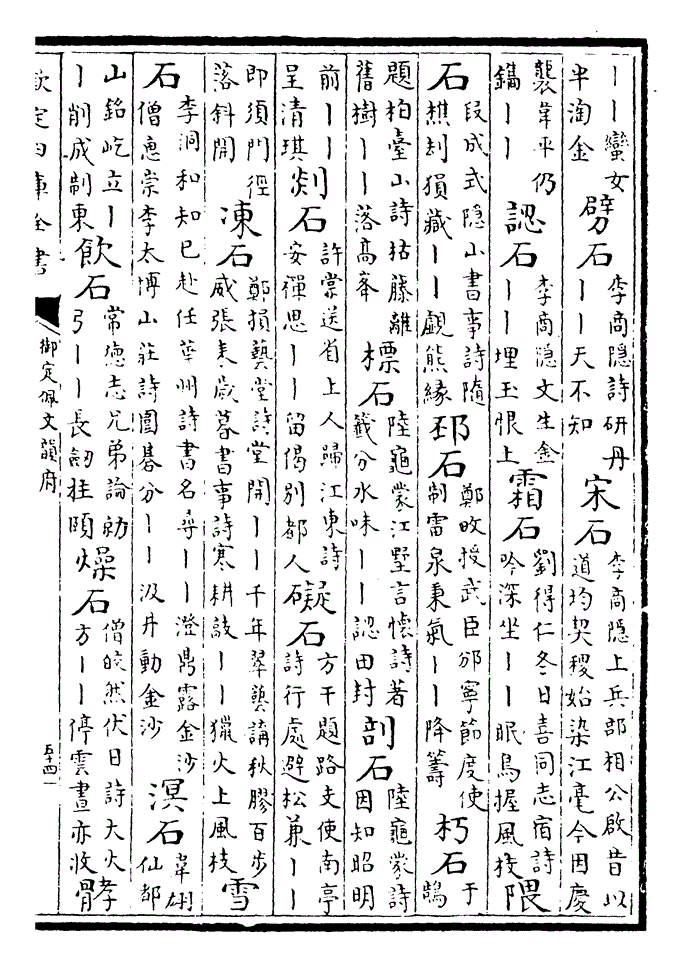 丨丨蠻女
半淘金
劈石
李商隱詩研丹
丨丨天不知
宋石
李商隱上兵部相公啟昔以
道均契稷始染江毫今因慶
襲韋平仍
鐫丨丨
認石
李商隱文生金
丨丨埋玉恨上
霜石
劉得仁冬日喜同志宿詩
吟深坐丨丨眠鳥握風枝
隈
石
段成式隱山書事詩隨
樵刦猿藏丨丨覷熊緣
邳石
鄭畋授武臣邠寧節度使
制雷泉秉氣丨丨降籌
朽石
于
鵠
題柏臺山詩枯藤離
舊樹丨丨落高峯
標石
陸龜蒙江墅言懷詩著
籤分水味丨丨認田封
剖石
陸龜蒙詩
因知昭明
前丨丨
呈清琪
剡石
許棠送省上人歸江東詩
安禪思丨丨留偈別都人
礙石
方干題路支使南亭
詩行處避松兼丨丨
即須門徑
落斜開
凍石
鄭損藝堂詩堂開丨丨千年翠藝講秋膠百步
威張 歲暮書事詩寒耕敲丨丨獵火上風枝
雪
石
李洞和知己赴任華州詩書名尋丨丨澄鼎露金沙
僧惠崇李太博山莊詩圍碁分丨丨汲井動金沙
溟石
韋翃
仙都
山銘屹立丨
丨削成制東
飲石
常德志兄弟論勍
弓丨丨長劒拄頤
燥石
僧皎然伏日詩大火
方丨丨停雲晝亦收
欽定四庫全書
御定佩文韻府